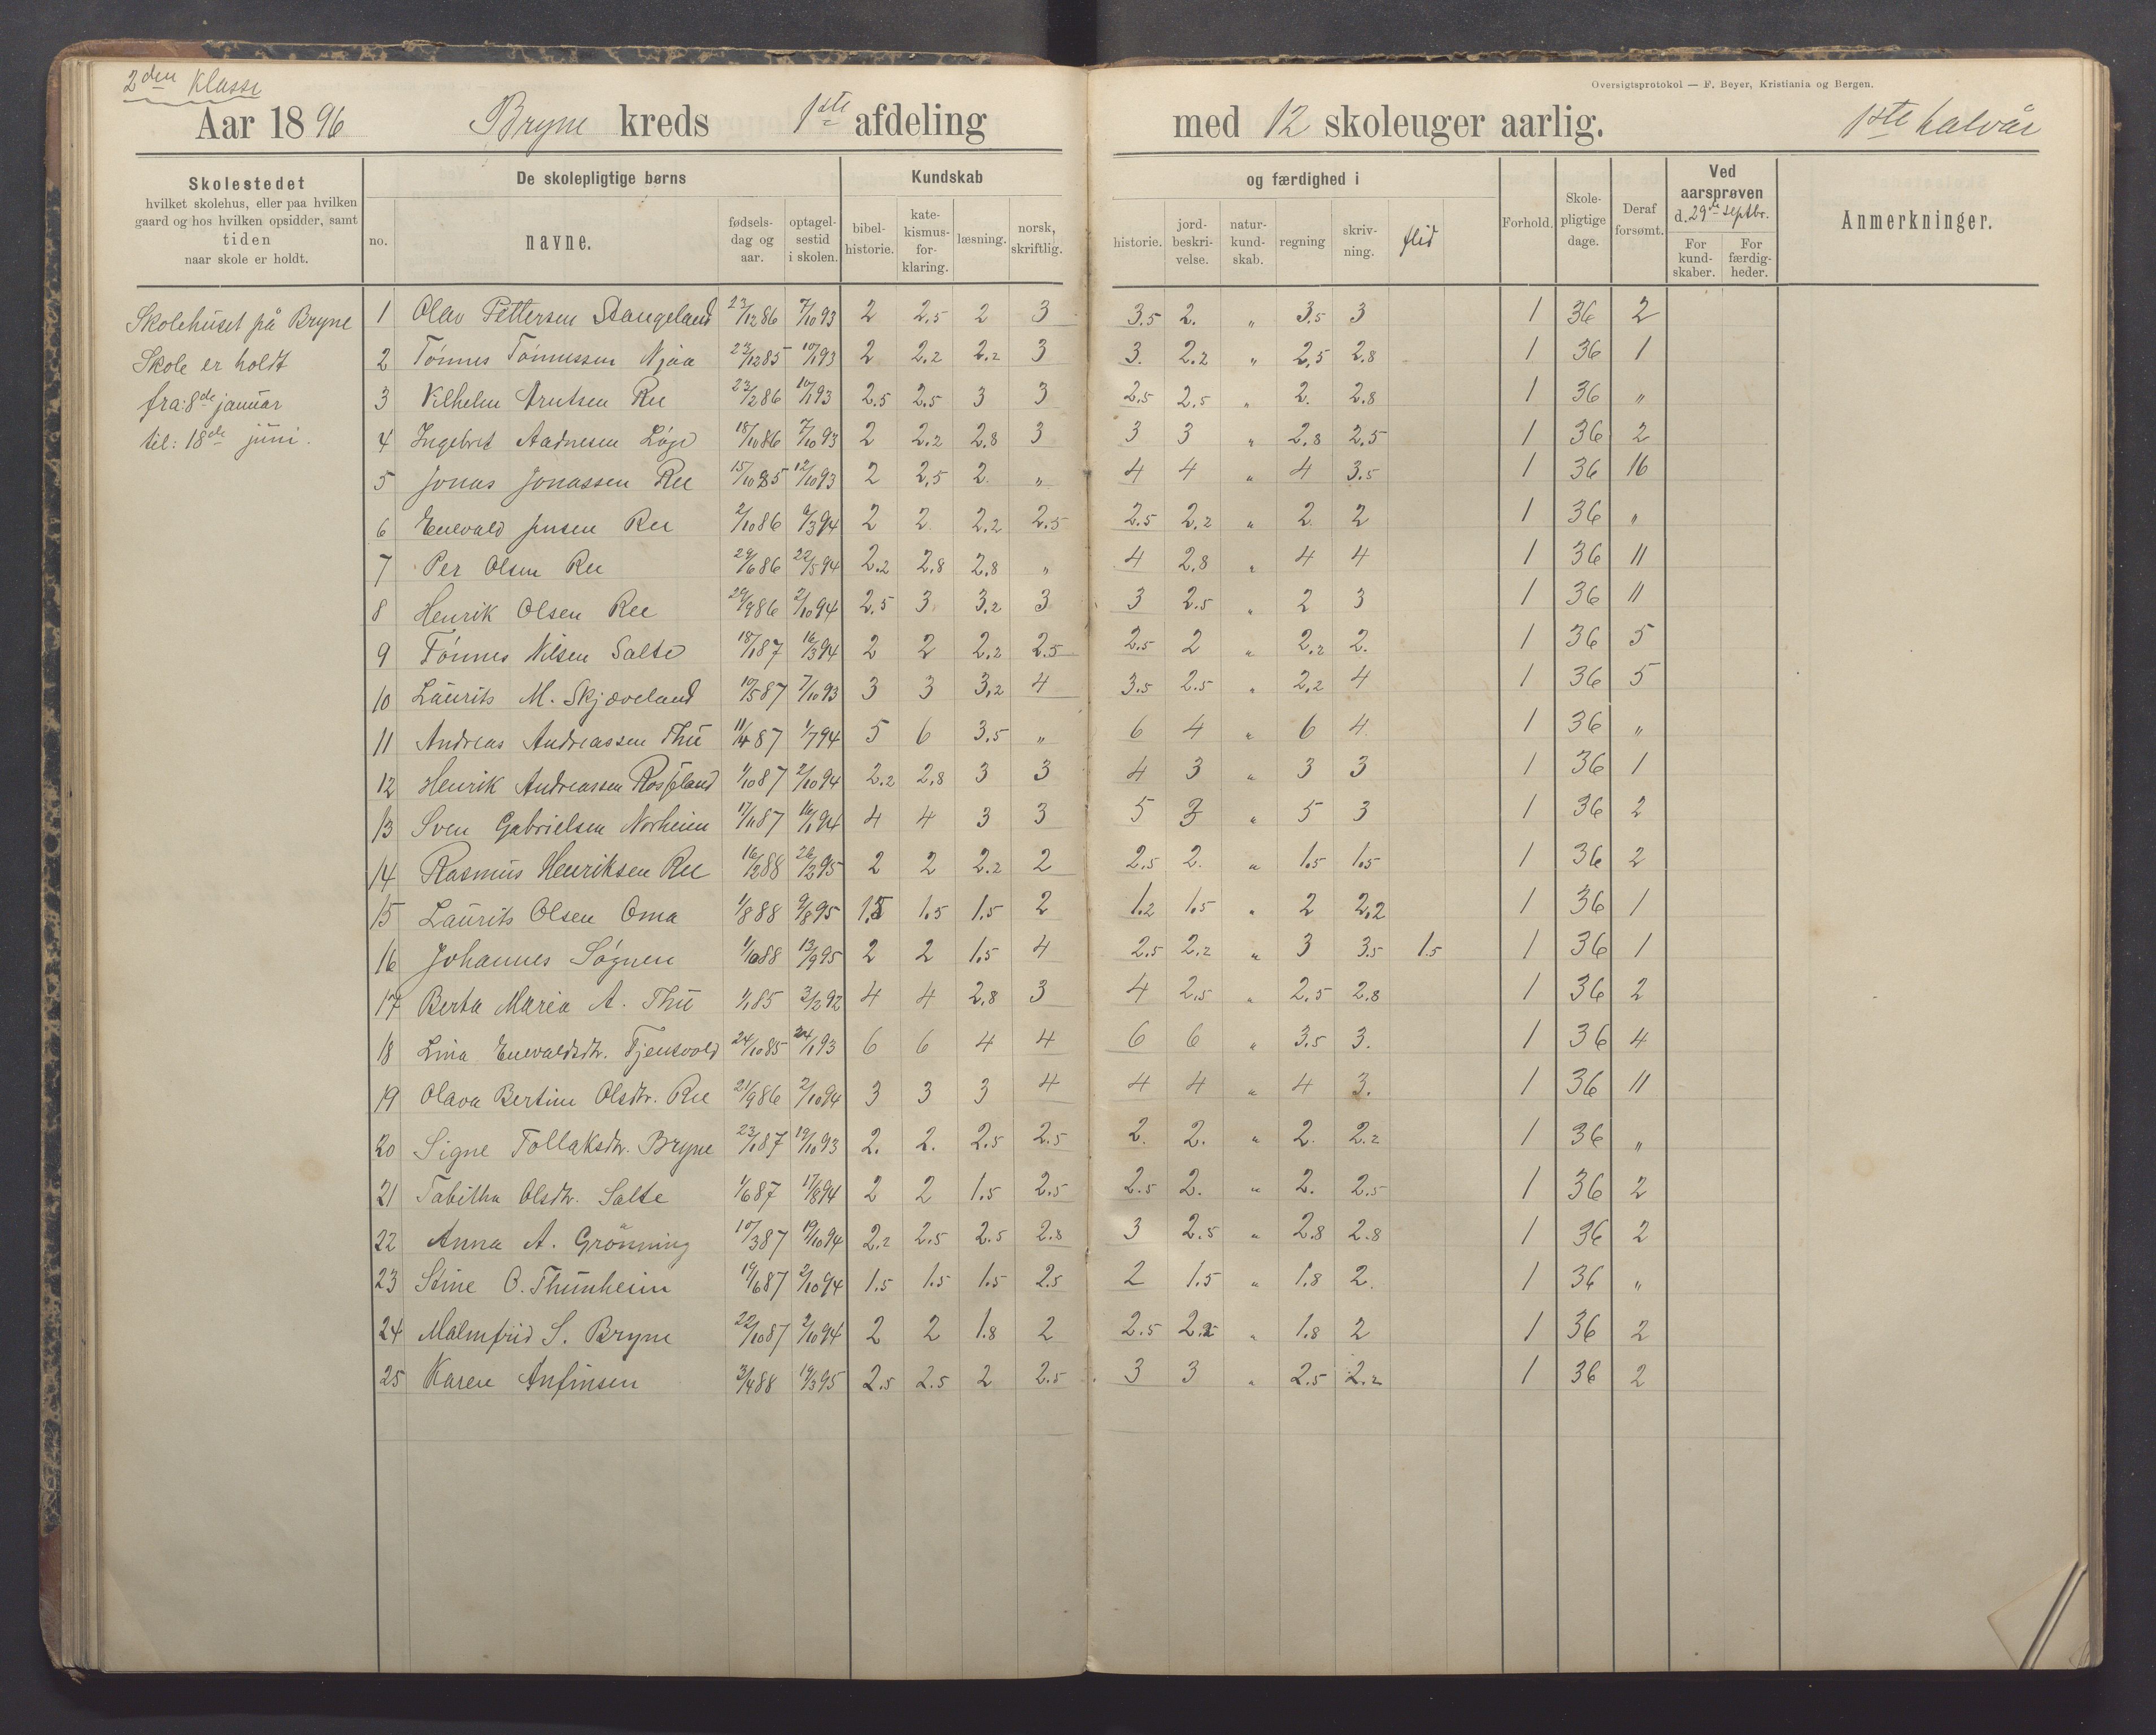 2den Klasse
Oversigtsprotokol — F. Beyer, Kristiania og Bergen.
Aar 1896 Bryne kreds 1ste afdeling med 12 skoleuger aarlig. 1ste halvår
Skolestedet
hvilket skolehus, eller paa hvilken
gaard og hos hvilken opsidder, samt
tiden
naar skole er holdt.
De skolepligtige børns
no. navne. fødsels-dag og aar. optagel-sestid i skolen.
Kundskab og færdighed i
bibel-historie. kate-kismus-for-klaring. læsning. norsk, skriftlig. historie. jord-beskri-velse. natur-kund-skab. regning skriv-ning. flid
Forhold. Skole-pligtige dage. Deraf forsømt.
Ved aarsprøven d. 29de septbr.
For kund-skaber. For færdig-heder.
Anmerkninger.
Skolehuset på Bryne
Skole er holdt
fra: 8de januar
til: 18de juni.
1 Olav Pettersen Stangeland 23/12 86 7/10 93 2 2,5 2 3 3.5 2. " 3.5 3 1 36 2
2 Tønnes Tønnessen Njaa 23/12 85 10/1 93 2 2.2 2.2 3 3. 2.2 " 2,5 2.8 1 36 1
3 Vilhelm Arntsen Ree 23/2 86 10/1 93 2.5 2.5 3 3 2.5 2.5 " 2. 2.8 1 36 "
4 Ingebret Aadnesen Løge 18/10 86 7/10 93 2 2.2 2.8 3 3 3 " 2.8 2.5 1 36 2
5 Jonas Jonassen Ree 15/10 85 12/10 93 2 2,5 2. " 4 4 " 4 3.5 1 36 16
6 Enevald Jensen Ree 2/10 86 6/3 94 2 2. 2.2 2.5 2.5 2.2 " 2. 2 1 36 "
7 Per Olsen Ree 29/6 86 22/5 94 2.2 2.8 2.8 " 4 2.8 " 4 4 1 36 11
8 Henrik Olsen Ree 29/9 86 2/10 94 2.5 3 3.2 3 3 2.5 " 2 3 1 36 11
9 Tønnes Nilsen Salte 18/1 87 16/3 94 2 2 2.2 2.5 2.5 2 " 2.2 2. 1 36 5
10 Laurits M. Skjæveland 10/5 87 7/10 93 3 3 3,2 4 3.5 2.5 " 2,2 4 1 36 5
11 Andreas Andreassen Thu 11/4 87 1/7 94 5 6 3.5 " 6 4 " 6 4. 1 36 "
12 Henrik Andreassen Rosseland 1/10 87 2/10 94 2.2 2,8 3 3 4 3 " 3 3 1 36 1
13 Sven Gabrielsen Norheim 17/11 87 16/1 94 4 4 3 3 5 3 " 5 3 1 36 2
14 Rasmus Henriksen Ree 16/12 88 26/12 95 2 2 2.2 2 2.5 2. " 1.5 1.5 1 36 2
15 Laurits Olsen Oma 1/8 88 9/8 95 1,5 1.5 1.5 2 1.2 1.5 " 2 2,2 1 36 1
16 Johannes Søgnen 1/10 88 13/9 95 2 2 1.5 4 2.5 2.2 " 3 3.5 1.5 1 36 1
17 Berta Maria A. Thu 1/1 85 3/2 92 4 4 2.8 3 4 2.5 " 2.5 2.8 1 36 2
18 Lina Enevaldsdtr. Tjensvold 24/10 85 24/1 93 6 6 4 4 6 6 " 3.5 3. 1 36 4
19 Olava Bertine Olsdtr. Ree 21/9 86 2/10 94 3 3 3 4 4 4 " 4 3. 1 36 11
20 Signe Tollaksdtr. Bryne 23/1 87 19/10 93 2. 2. 2.5 2.5 2. 2. " 2. 2.2 1 36 "
21 Tabitha Olsdtr. Salte 1/6 87 17/8 94 2 2 1.5 2.5 2.5 2. " 2. 2.5 1 36 2
22 Anna A. Grönning 10/3 87 19/10 94 2.2 2.5 2.5 2.8 3 2.5 " 2.8 2.8 1 36 2
23 Stine O. Thunheim 19/6 87 2/10 94 1.5 1.5 1.5 2.5 2 1.5 " 1.8 2. 1 36 "
24 Malmfrid S. Bryne 22/10 87 2/10 94 2 2 1.8 2 2.5 " 1.8 2 1 36 2
25 Karen Anfinsen 3/4 88 19/3 95 2.5 2.5 2 2.5 3 3 " 2.5 2.2 1 36 2